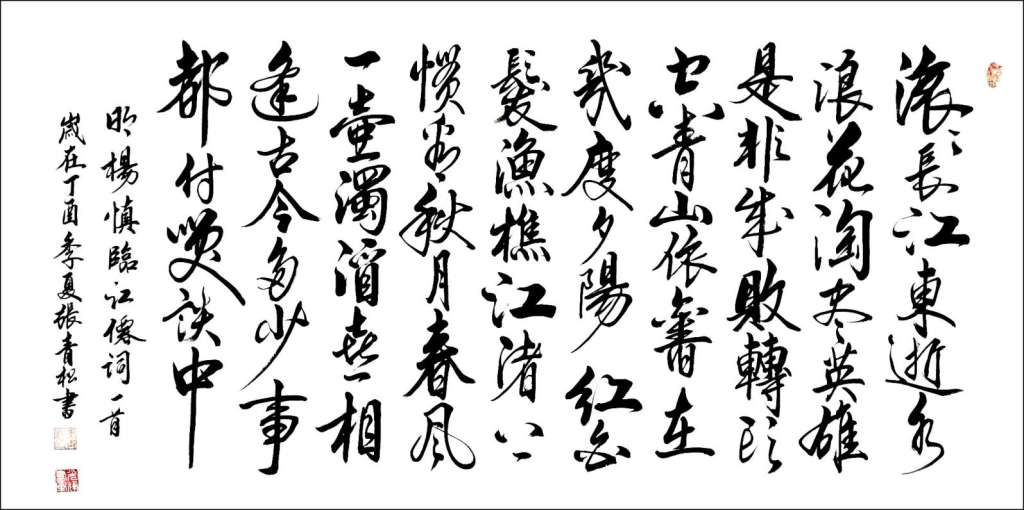 滚〻長江東逝水
浪花淘尽英雄
是非成敗轉头
空青山依舊在
幾度夕陽紅白
髮漁樵江渚上
惯看秋月春风
一壶濁酒喜相
逢古今多少事
都付笑谈中
明楊慎臨江僊词一首
歲在丁酉季夏張青松書